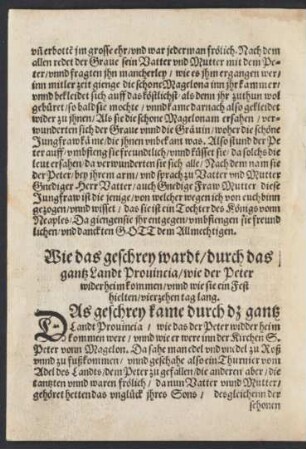 vñ erbottē jm grosse ehr/ vnd war jederman frölich. Nach dem
allen redet der Graue sein Vatter vnd Mutter mit dem Pe-
ter/ vnnd fragten jhn mancherley / wie es jhm ergangen wer/
inn mitler zeit gienge die schone Magelona inn jhr kammer/
vnnd bekleidet sich auff das köstlichst/ als denn jhr zuthun wol
gebüret/ so bald sie mochte / vnnd kame darnach also gekleidet
wider zu jhnen/ Als sie die schöne Magelonam ersahen/ ver-
wunderten sich der Graue vnnd die Gräuin/ woher die schöne
Jungfraw käme/ die jhnen vnbekant was. Also stund der Pe
ter auff/ vmbfieng sie freundtlich/ vnnd küsset sie/ da solchs die
leut ersahen/ da verwunderten sie sich alle/ Nach dem nam sie
der Peter/ bey jhrem arm/ vnd sprach zu Vatter vnd Mutter
Gnediger Herr Vatter/ auch Gnedige Fraw Mutter diese
Jungfraw ist die jenige/ von welcher wegen ich von euch hinn
gezogen/ vnnd wisset / das sie ist ein Tochter des Königs vonn
Neaples/ Da giengen sie jhr entgegen/ vmbfiengen sie freund
lichen/ vnd danckten GOTT dem Allmechtigen.
Wie das geschrey wardt/ durch das
gantz Landt Prouincia/ wie der Peter
wider heim kommen/ vnnd wie sie ein Fest
hielten/ vierzehen tag lang.
DAs geschrey kame durch dz gantz
Landt Prouincia / wie das der Peter widder heim
kommen were / vnnd wie er were inn der Kirchen S.
Peter vonn Magelon. Da sahe man edel vnd vnedel zu Roß
vnnd zu fuß kommen/ vnnd geschahe also ein Thurnier vom
Adel des Landts/ dem Peter zu gefallen/ die anderen aber/ die
tantzten vnnd waren frölich / da nun Vatter vnnd Mutter/
gehöret hetten das vnglück jhres Sons / desgleichenn der
schonen